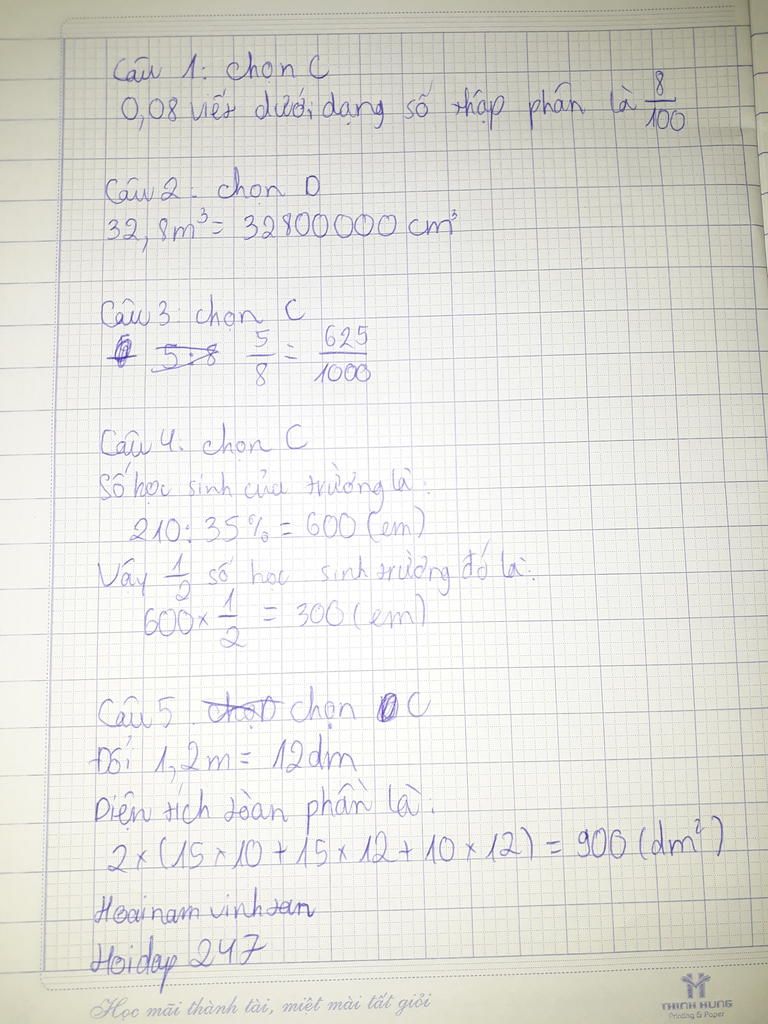 Câu 1: chọn C
0,08 viết dưới dạng số thập phân là 8/100
Câu 2: chọn D
32,8m³ = 32800000 cm³
Câu 3: chọn C
5:8 5/8 = 625/1000
Câu 4: chọn C
Số học sinh của trường là:
210 : 35% = 600 (em)
Vậy 1/2 số học sinh trường đó là:
600 × 1/2 = 300 (em)
Câu 5: chọn chọn C
Đổi 1,2m = 12dm
Diện tích toàn phần là:
2 × (15 × 10 + 15 × 12 + 10 × 12) = 900 (dm²)
Hoainamvinhtan
Hoidap 247
Học mãi thành tài, miệt mài tất giỏi
THINH HUNG
Printing & Paper